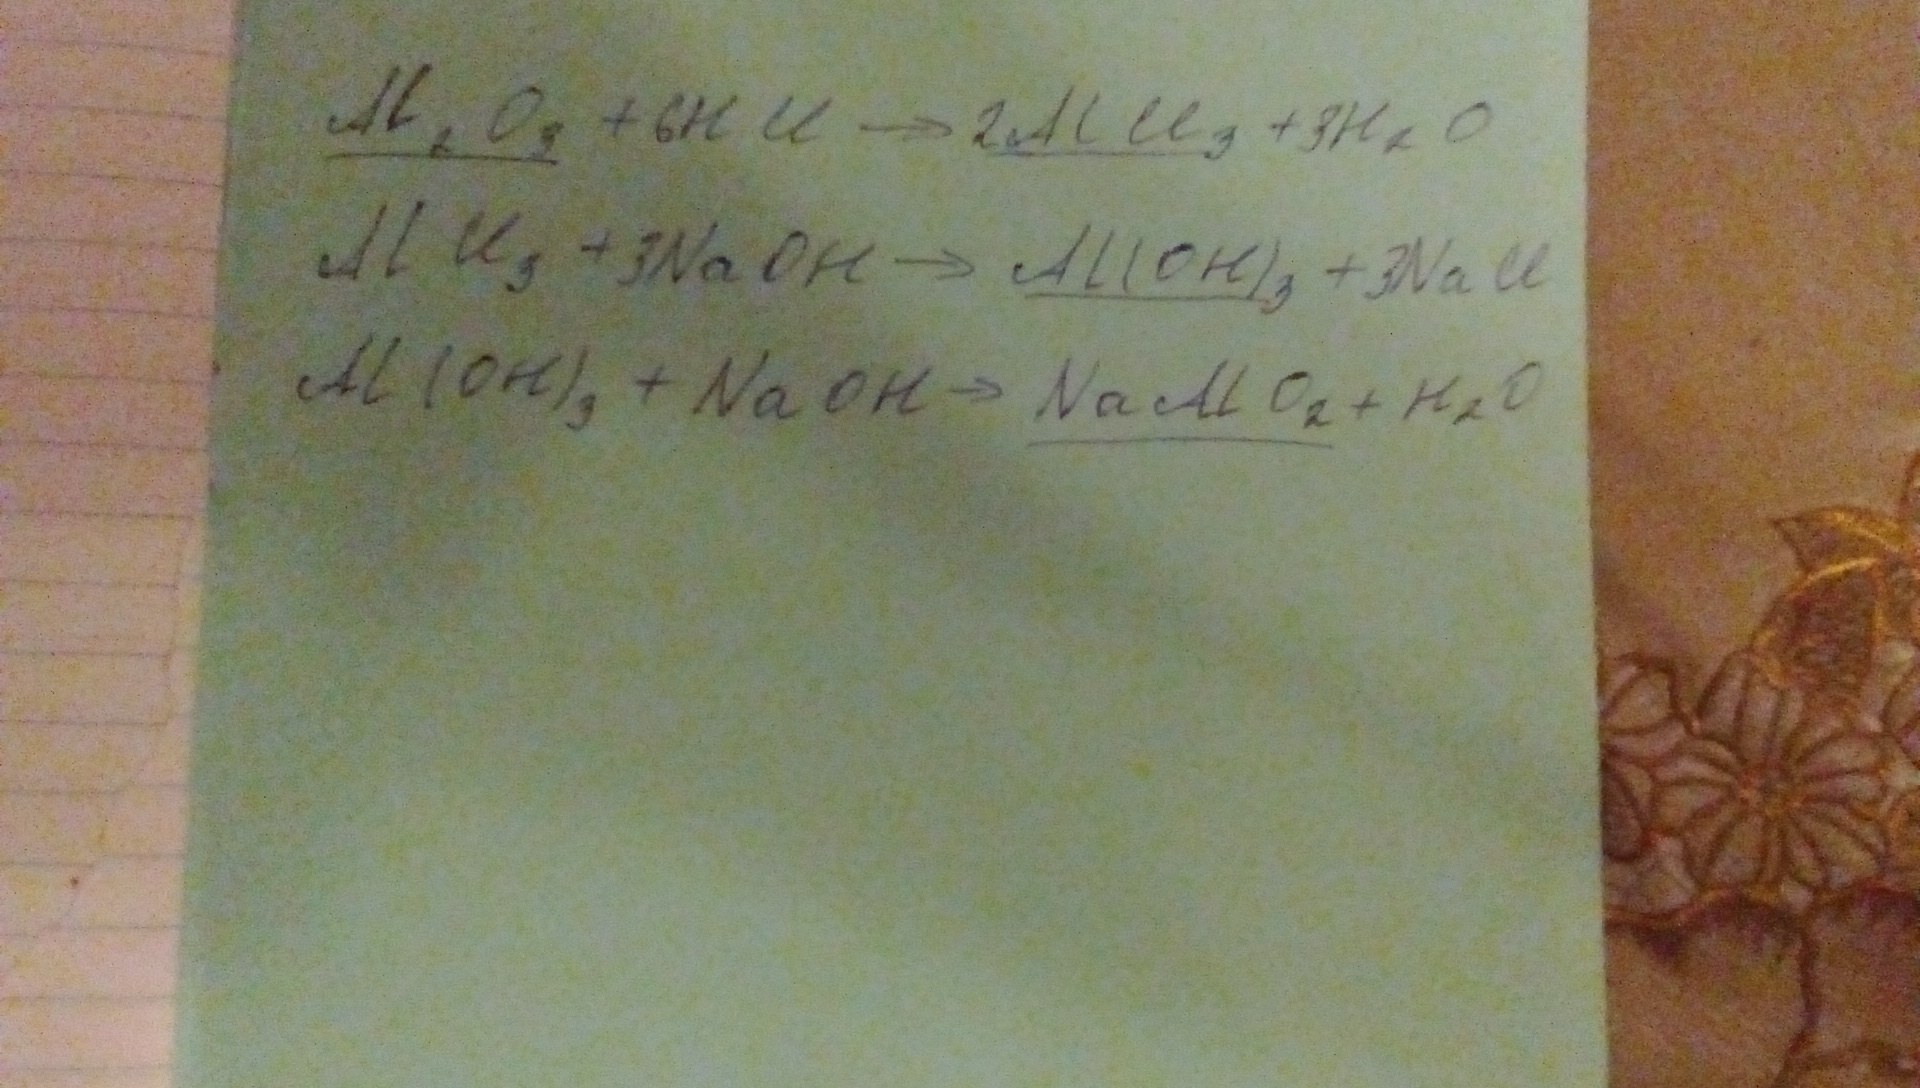 Al₂O₃ + 6HCl → 2AlCl₃ + 3H₂O
AlCl₃ + 3NaOH → Al(OH)₃ + 3NaCl
Al(OH)₃ + NaOH → NaAlO₂ + H₂O